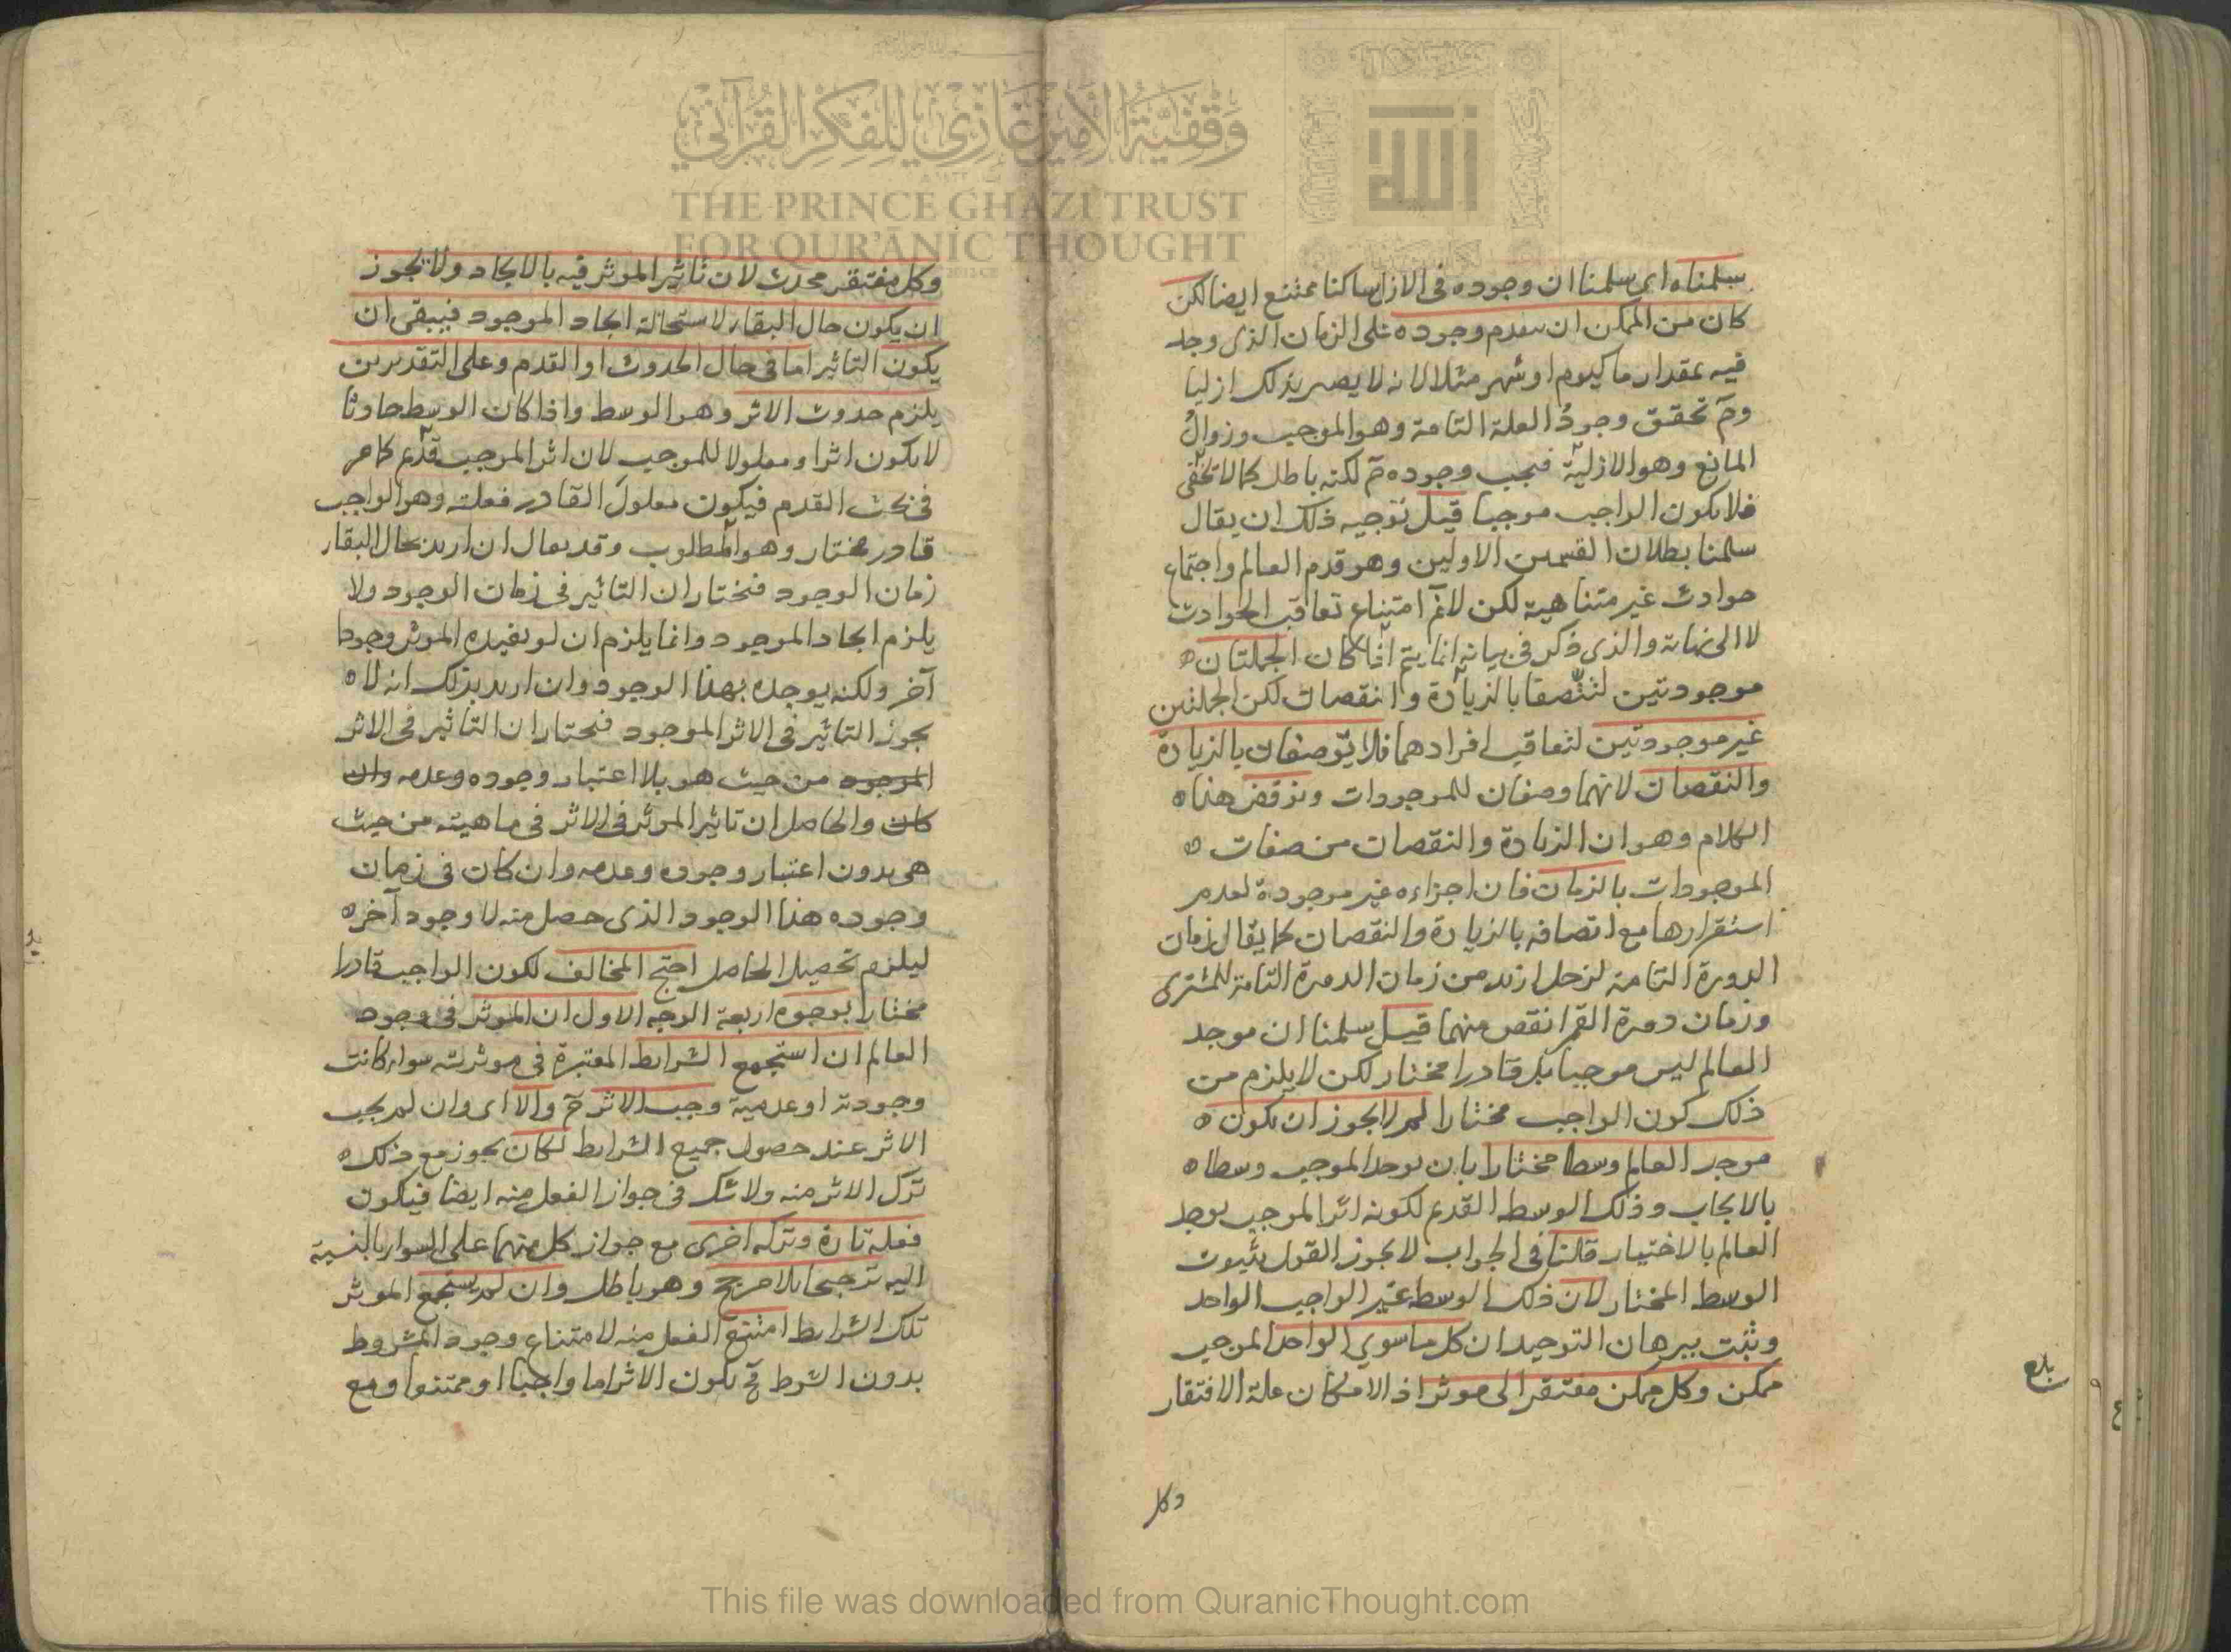 سلمناه اى سلمنا ان وجوده فى الازل ساكنا ممتنع ايضا لكن
كان من الممكن ان يتقدم وجوده على الزمان الذى وجد
فيه بمقدار ما كيوم او شهر مثلا لانه لا يصير بذلك ازليا
وحٓ تحقق وجودُ العلة التامة وهو الموجب وزوالُ
المانع وهو الازلية فيجب وجوده حٓ لكنه باطل كما لا تخفى
فلا يكون الواجب موجبا قيل توجيه ذلك ان يقال
سلمنا بطلان القسمين الاولين وهو قدم العالم واجتماع
حوادث غير متناهية لكن لانمٓ امتناع تعاقب الحوادث
لا الى نهاية والذى ذكر فى بيانه انما يتم اذا كان الجملتان ه
موجودتين لتتصفا بالزيادة والنقصان لكن الجملتين
غير موجودتين لتعاقب افرادهما فلا توصفان بالزيادة
والنقصان لانهما وصفان للموجودات ونوقض هذا ه
الكلام وهو ان الزيادة والنقصان من صفات ه
الموجودات بالزمان فان اجزاءه غير موجودة لعدم
استقرارها مع اتصافه بالزيادة والنقصان كما يقال زمان
الدورة التامة لزحل ازيد من زمان الدورة التامة للمشترى
وزمان دورة القمر انقص منهما قيل سلمنا ان موجد
العالم ليس موجبا بل قادرا مختار لكن لا يلزم من
ذلك كون الواجب مختارا لم لا يجوز ان يكون ه
موجد العالم وسطا مختارا بان يوجد الموجب وسطا ه
بالايجاب وذلك الوسط القديم لكونه اثر الموجب يوجد
العالم بالاختيار قلنا فى الجواب لا يجوز القول بثبوت
الوسط المختار لان ذلك الوسط غير الواجب الواحد
وثبت ببرهان التوحيد ان كل ما سوي الواحد الموجب
ممكن وكل ممكن مفتقر الى موثر اذ الامكان علة الافتقار
بلغ
وكل
وكل مفتقر محدث لان تاثير الموثر فيه بالايجاد ولا يجوز
ان يكون حال البقاء لاستحالة ايجاد الموجود فيبقى ان
يكون التاثير اما فى حال الحدوث او القدم وعلى التقديرين
يلزم حدوث الاثر وهو الوسط واذا كان الوسط حادثا
لا يكون اثرا ومعلولا للموجب لان اثر الموجب قديم كما مر
فى بحث القدم فيكون معلول القادر فعلته وهو الواجب
قادر مختار وهو المطلوب وقد يقال ان اريد بحال البقاء
زمان الوجود فنختار ان التاثير فى زمان الوجود ولا
يلزم ايجاد الموجود وانما يلزم ان لو يفيده الموثر وجودا
آخر ولكنه يوجده بهذا الوجود وان اريد بذلك انه لا ه
يجوز التاثير فى الاثر الموجود فنختار ان التاثير فى الاثر
الموجود من حيث هو بلا اعتبار وجوده وعدمه وان
كان والحاصل ان تاثير الموثر فى الاثر فى ماهيته من حيث
هى بدون اعتبار وجوده وعدمه وان كان فى زمان
وجوده هذا الوجود الذى حصل منه لا وجود آخر ه
ليلزم تحصيل الحاصل احتج المخالف لكون الواجب قادرا
مختارا بوجوه اربعة الوجه الاول ان الموثر فى وجود
العالم ان استجمع الشرايط المعتبرة فى موثريته سواء كانت
وجودية او عدمية وجب الاثر حٓ والا اى وان لم يجب
الاثر عند حصول جميع الشرايط لكان يجوز مع ذلك ه
ترك الاثر منه ولا شك فى جواز الفعل منه ايضا فيكون
فعله تارة وتركه اخرى مع جواز كل منهما على السواء بالنسبة
اليه ترجيحا بلا مرجح وهو باطل وان لم يستجمع الموثر
تلك الشرايط امتنع الفعل منه لامتناع وجود المشروط
بدون الشرط فحٓ يكون الاثر اما واجبا او ممتنعا ومع
وقفية الأمير غازي للفكر القرآني
THE PRINCE GHAZI TRUST
FOR QUR'ĀNIC THOUGHT
الله
This file was downloaded from QuranicThought.com